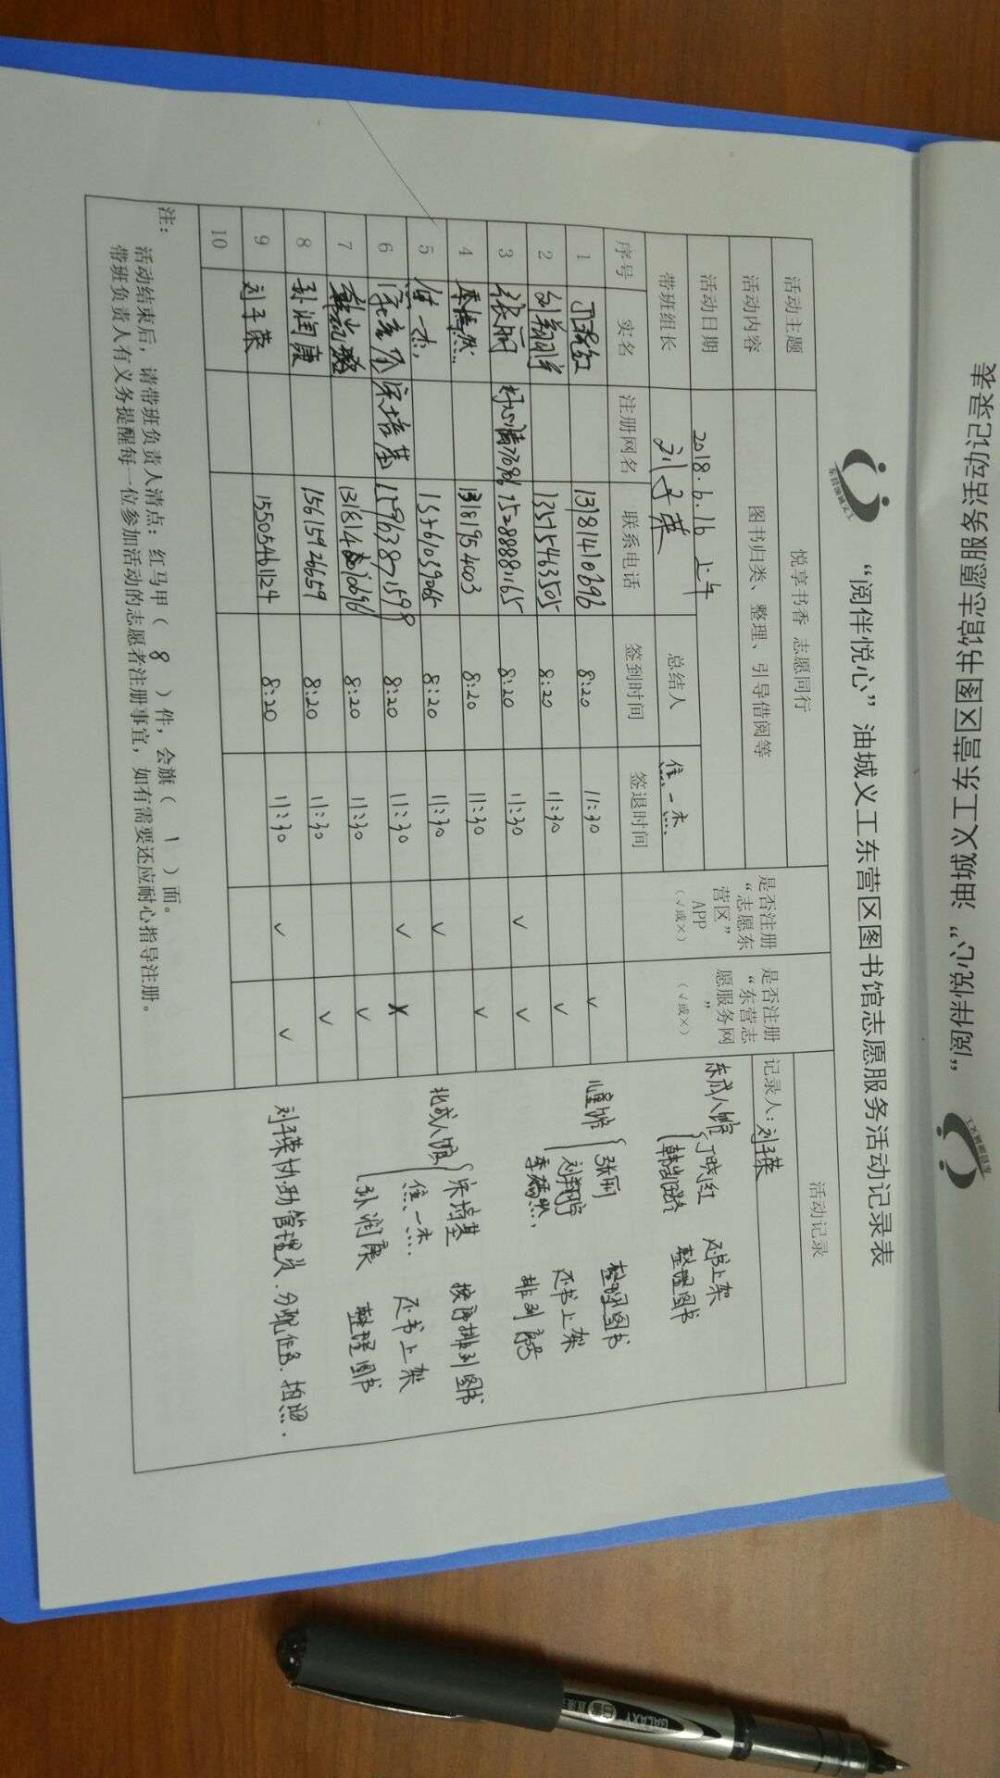 “阅伴悦心”油城义工东营区图书馆志愿服务活动记录表
“阅伴悦心”油城义工东营区图书馆志愿服务活动记录表
活动主题 悦享书香 志愿同行 是否注册“志愿东营区”APP（√或×） 是否注册“东营志愿服务网”（√或×） 活动记录
活动内容 图书归类、整理、引导借阅等 记录人：刘子荣
活动日期 2018.6.16 上午
带班组长 刘子荣 总结人
序号 实名 注册网名 联系电话 签到时间 签退时间
1 13181410696 8:20 11:30 √
2 13515463505 8:20 11:30 √
3 张丽 好心情7696 15288881165 8:20 11:30 √ √
4 13181954003 8:20 11:30 √
5 8:20 11:30 √
6 宋培基 15963871598 8:20 11:30 √ ×
7 8:20 11:30 √
8 孙润康 15615926659 8:20 11:30 √
9 刘子荣 15505461124 8:20 11:30 √ √
10
东成人馆 丁晓红 还书上架
整理图书
儿童馆 张丽 整理图书
还书上架
排列序号
北成人馆 宋培基 按序排列图书
还书上架
孙润康 整理图书
刘子荣协助管理员.分配任务.拍照....
注：
活动结束后，请带班负责人清点：红马甲（ 8 ）件，会旗（ 1 ）面。
带班负责人有义务提醒每一位参加活动的志愿者注册事宜，如有需要还应耐心指导注册。
GALAXY